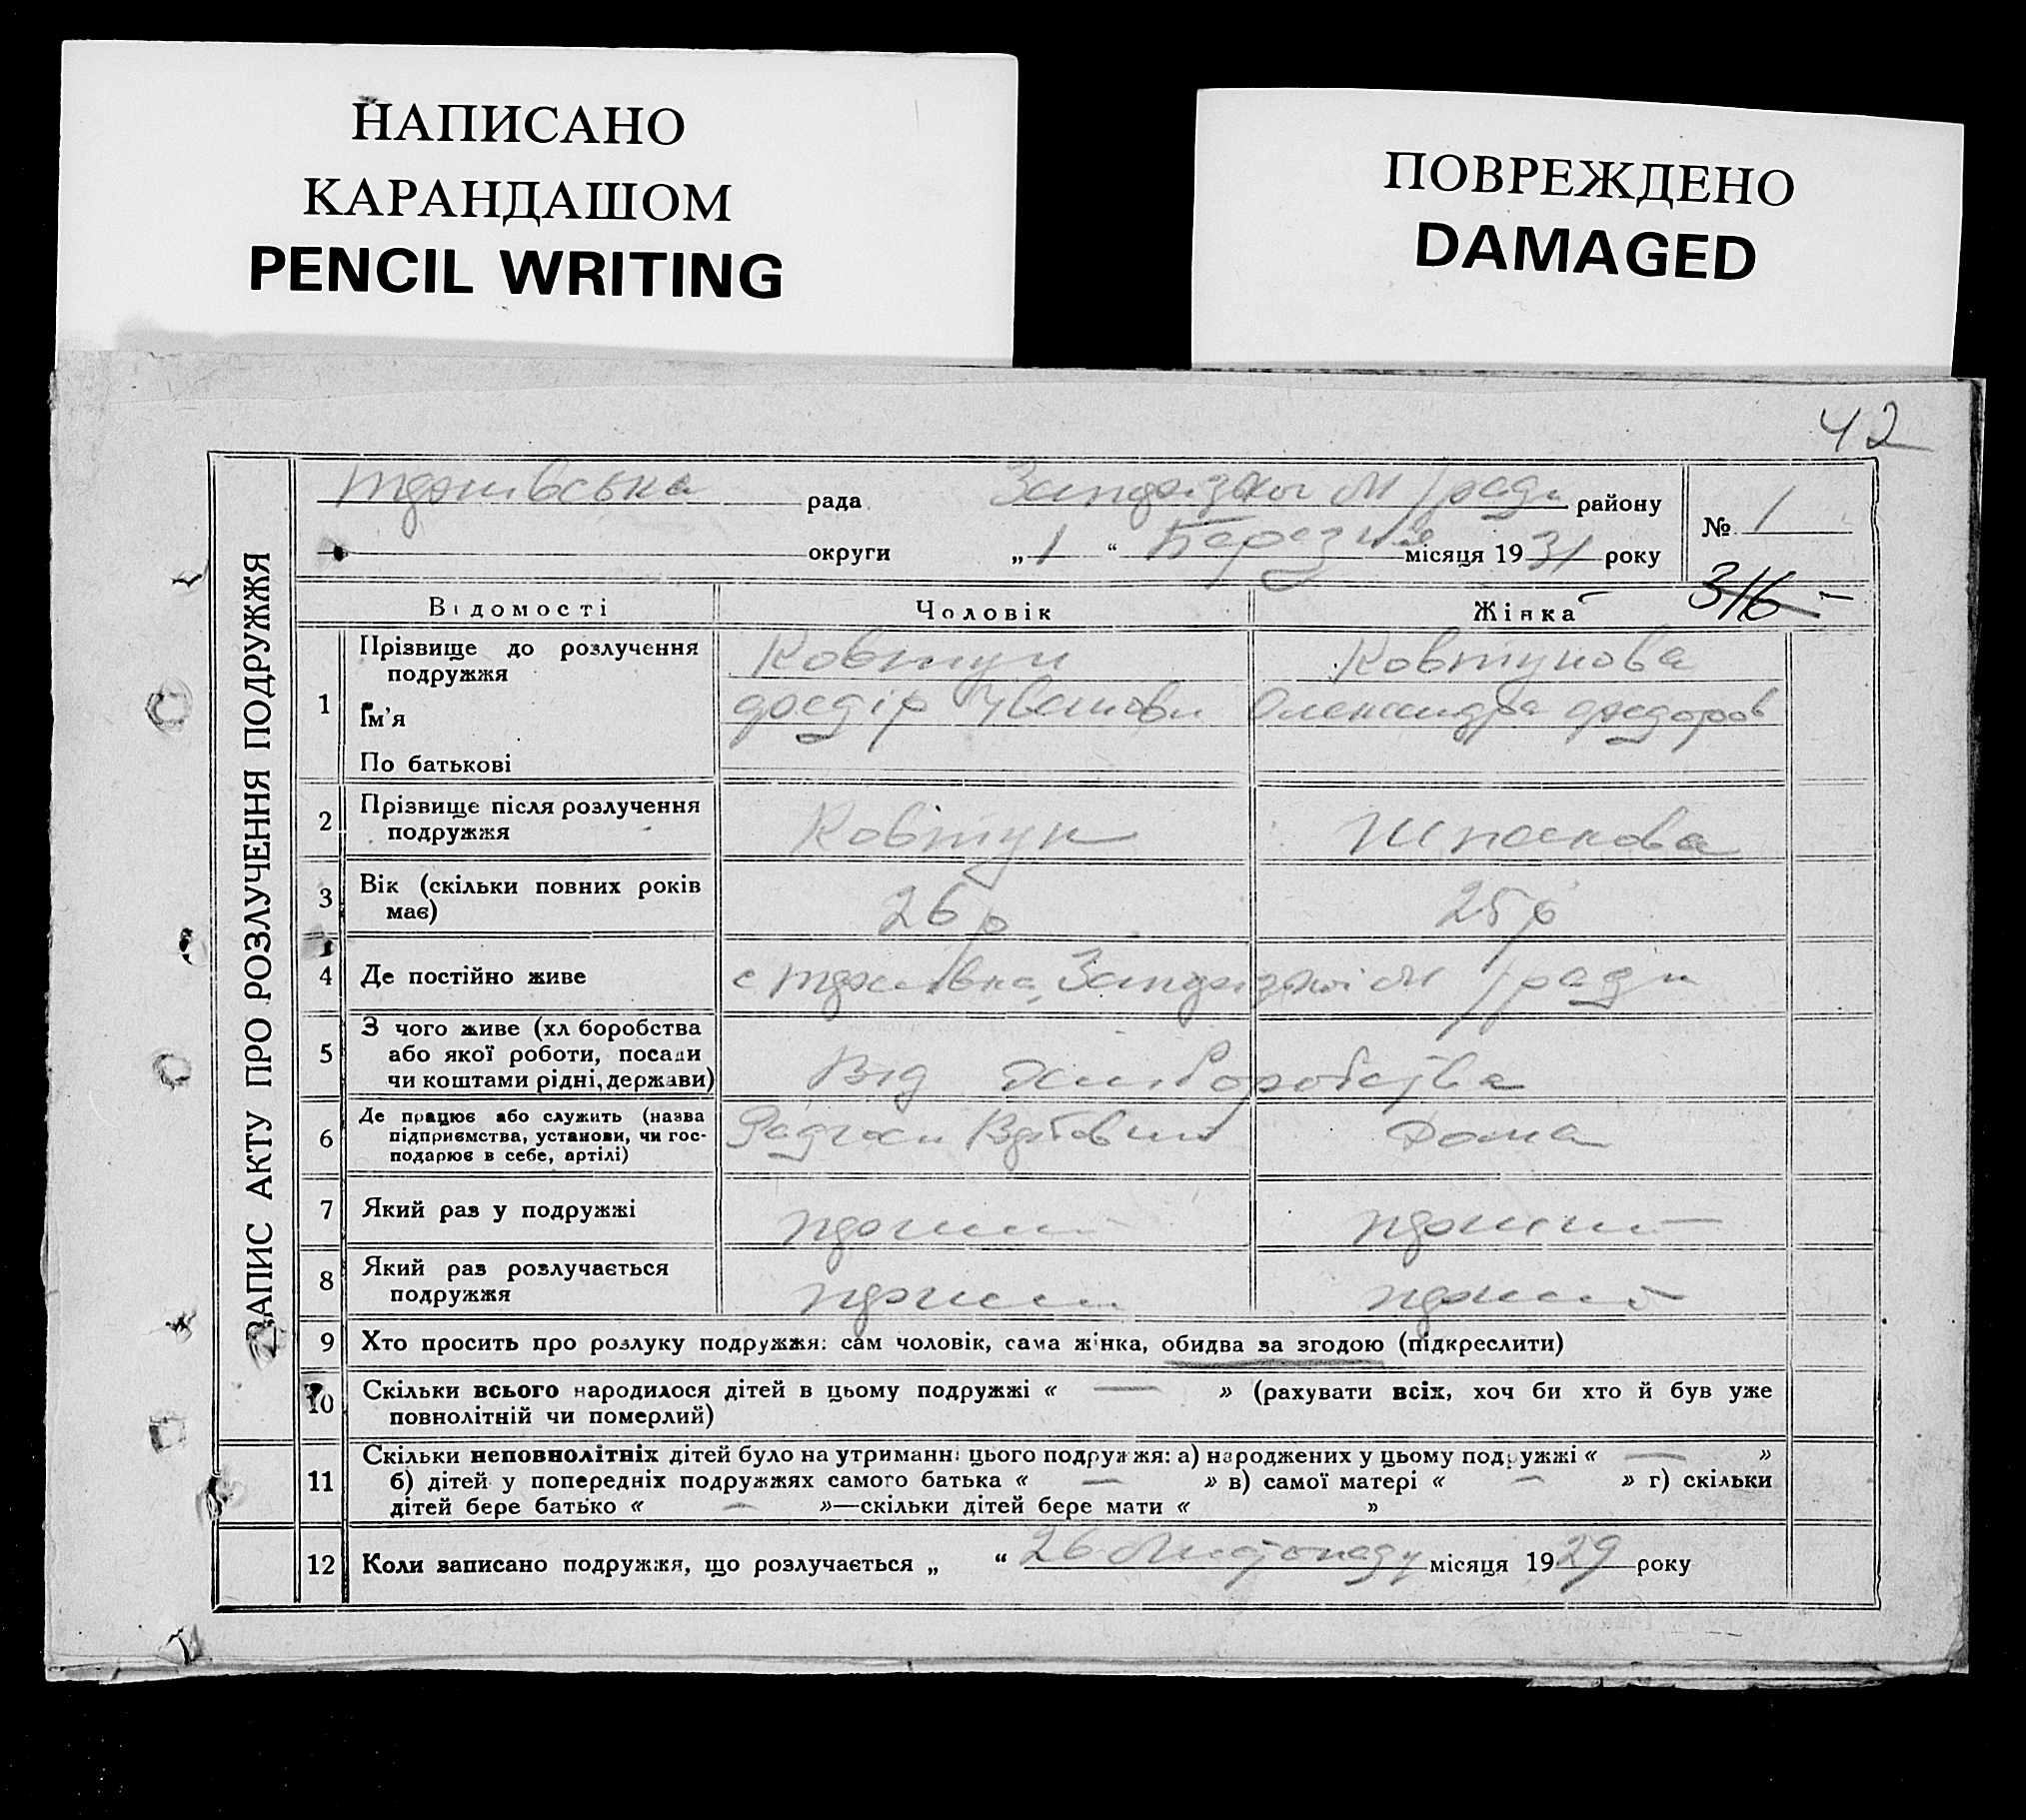 НАПИСАНО
КАРАНДАШОМ
PENCIL WRITING
ПОВРЕЖДЕНО
DAMAGED
42
ЗАПИС АКТУ ПРО РОЗЛУЧЕННЯ ПОДРУЖЖЯ
рада
району
№ 1
округи „ 1 “ Березня місяця 1931 року
316 –
Відомості Чоловік Жінка
1 Прізвище до розлучення Ковтун Ковтунова
подружжя
Ім'я Федір Іванови Олександра Федоров
По батькові
2 Прізвище після розлучення Ковтун Шпакова
подружжя
3 Вік (скільки повних років 26 р 25 р
має)
4 Де постійно живе с
5 З чого живе (хліборобства
або якої роботи, посади Від хліборобства
чи коштами рідні, держави)
6 Де працює або служить (назва Дома
підприємства, установи, чи гос-
подарює в себе, артілі)
7 Який раз у подружжі перший перший
8 Який раз розлучається
подружжя перший перший
9 Хто просить про розлуку подружжя: сам чоловік, сама жінка, обидва за згодою (підкреслити)
10 Скільки всього народилося дітей в цьому подружжі « — » (рахувати всіх, хоч би хто й був уже
повнолітній чи померлий)
11 Скільки неповнолітніх дітей було на утриманні цього подружжя: а) народжених у цьому подружжі « — »
б) дітей у попередніх подружжях самого батька « — » в) самої матері « — » г) скільки
дітей бере батько « — »—скільки дітей бере мати « »
12 Коли записано подружжя, що розлучається „ “ 26 Листопаду місяця 1929 року